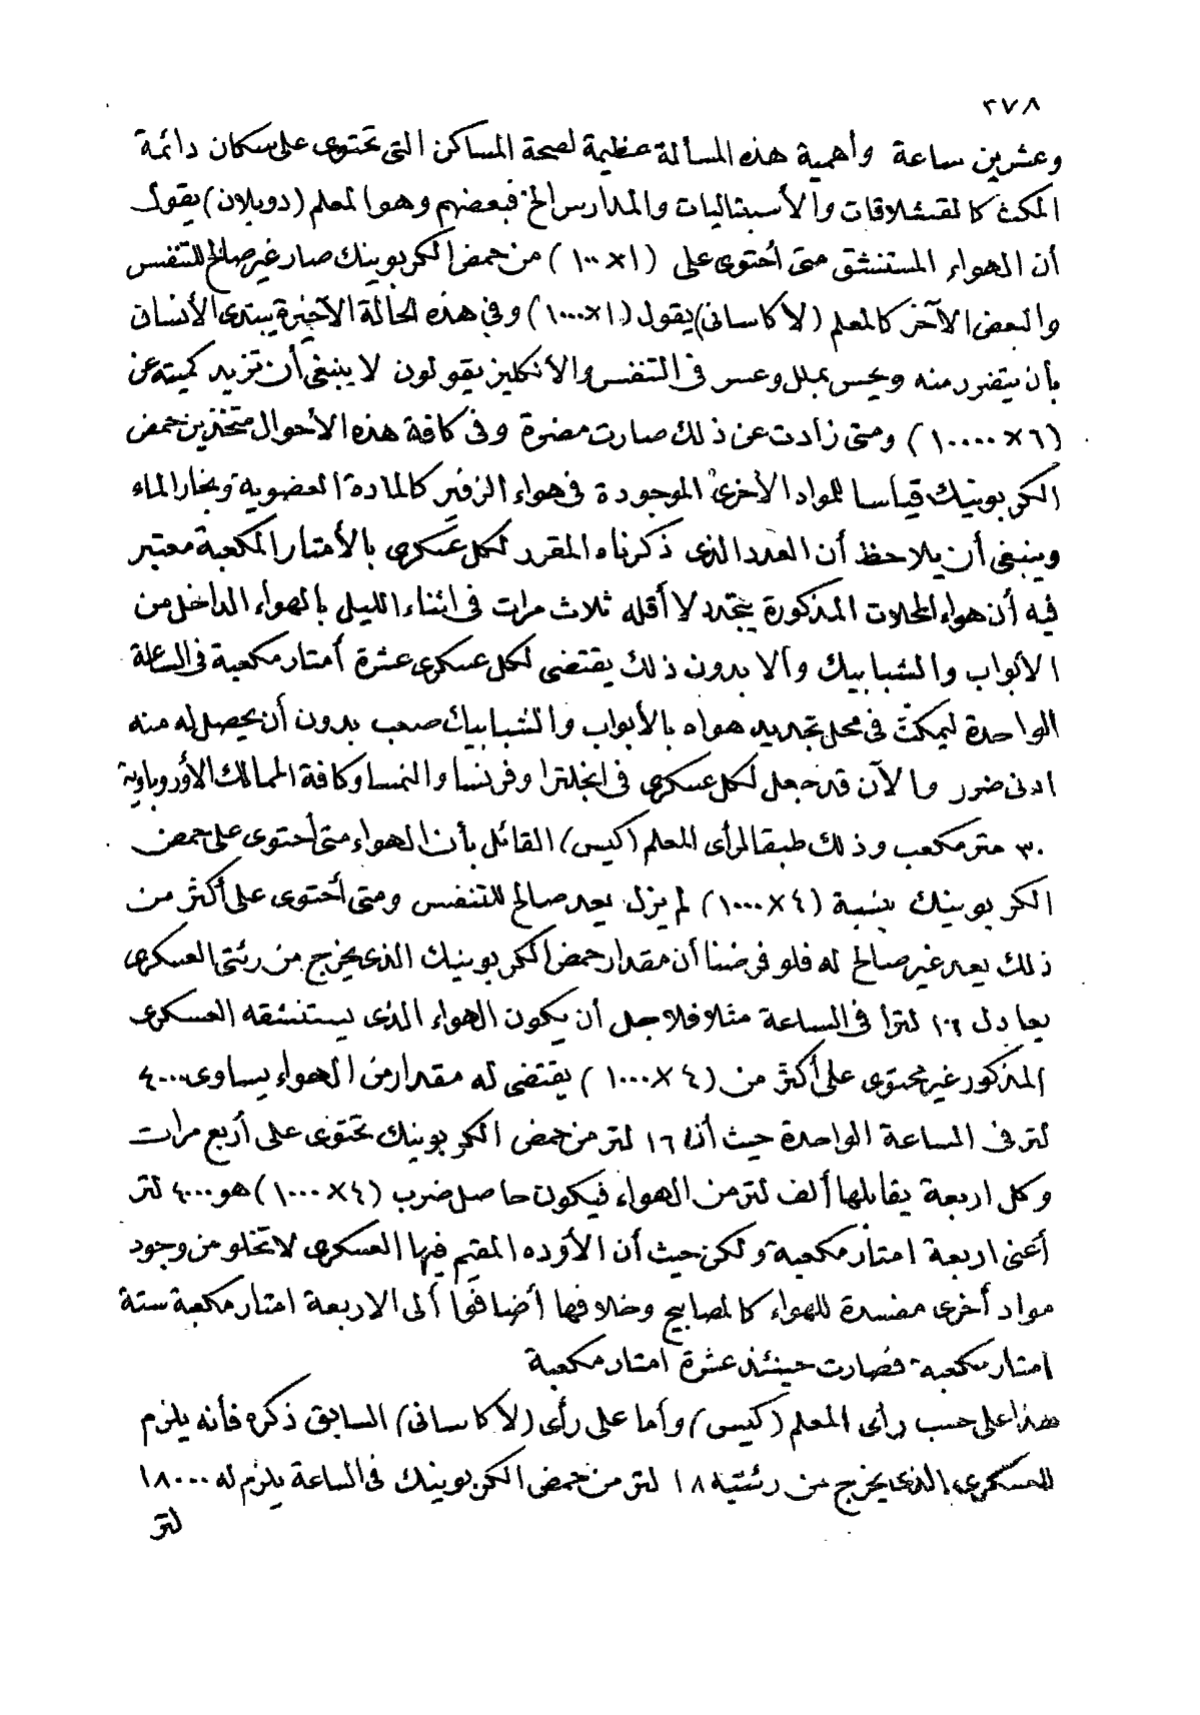 ٢٧٨
وعشرين ساعة وأهمية هذه المسألة عظيمة لصحة المساكن التى تحتوى على سكان دائمة
المكث كالقشلاقات والأسبتاليات والمدارس الخ فبعضهم وهو المعلم (دوبلان) يقول
أن الهواء المستنشق متى أحتوى على (١×١٠٠) من حمض الكربونيك صار غير صالح للتنفس
والبعض الآخر كالمعلم (لاكاسانى) يقول (١×١٠٠٠) وفى هذه الحالة الآخيرة يبتدى الأنسان
بأن يتضرر منه ويحس بملل وعسر فى التنفس والأنكليز يقولون لا ينبغى أن تزيد كميته عن
(٦×١٠٠٠٠) ومتى زادت عن ذلك صارت مضرة وفى كافة هذه الأحوال متخذين حمض
الكربونيك قياسا للمواد الأخرى الموجودة فى هواء الزفير كالمادة العضوية وبخار الماء
وينبغى أن يلاحظ أن العدد الذى ذكرناه المقرر لكل عسكرى بالأمتار المكعبة معتبر
فيه أن هواء المحلات المذكورة يتجدد لا أقله ثلاث مرات فى اثناء الليل بالهواء الداخل من
الأبواب والشبابيك وألا بدون ذلك يقتضى لكل عسكرى عشرة أمتار مكعبة فى الساعة
الواحدة ليمكث فى محل تجديد هواه بالأبواب والشبابيك صعب بدون أن يحصل له منه
ادنى ضرر والآن قد جعل لكل عسكرى فى انجلترا وفرنسا والنمسا وكافة الممالك الأوروباوية
٣٠ متر مكعب وذلك طبقا لرأى المعلم (كيس) القائل بأن الهواء متى أحتوى على حمض
الكربونيك بنسبة (٤×١٠٠٠) لم يزل يعد صالح للتنفس ومتى أحتوى على أكثر من
ذلك يعد غير صالح له فلو فرضنا أن مقدار حمض الكربونيك الذى يخرج من رئتى العسكرى
يعادل ١٦ لترا فى الساعة مثلا فلاجل أن يكون الهواء الذى يستنشقه العسكرى
المذكور غير محتوى على أكثر من (٤×١٠٠٠) يقتضى له مقدار من الهواء يساوى ٤٠٠٠
لتر فى الساعة الواحدة حيث أن ١٦ لتر من حمض الكربونيك تحتوى على أربع مرات
وكل اربعة يقابلها ألف لتر من الهواء فيكون حاصل ضرب (٤×١٠٠٠) هو ٤٠٠٠ لتر
أعنى اربعة امتار مكعبة ولكن حيث أن الأوده المقيم فيها العسكرى لا تخلو من وجود
مواد أخرى مفسدة للهواء كالمصابيح وخلافها أضافوا ألى الاربعة امتار مكعبة ستة
امتار مكعبة فصارت حينئذ عشرة امتار مكعبة
هذا على حسب رأى المعلم (كيس) وأما على رأى (لاكاسانى) السابق ذكره فأنه يلزم
للعسكرى الذى يخرج من رئتيه ١٨ لتر من حمض الكربونيك فى الساعة يلزم له ١٨٠٠٠
لتر